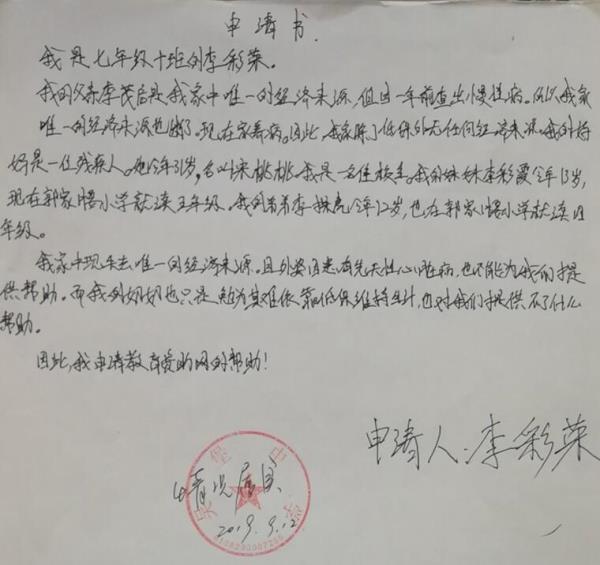 申请书
我是七年级十班的李彩荣。
我的父亲李茂启是我家中唯一的经济来源,但由一年前查出慢性病。所以我家
唯一的经济来源也断了。现在家养病。因此,我家除了低保外无任何经济来源。我的母
亲是一位残疾人。她今年31岁,名叫宋桃桃。我是一名住校生。我的妹妹李彩霞今年13岁,
现在郭家塔小学就读五年级。我的弟弟李林虎今年12岁,也在郭家塔小学就读四
年级。
我家中现失去唯一的经济来源。且外婆因患有先天性心脏病,也不能为我们提
供帮助。而我的奶奶也只是勉为其难依靠低保维持生计,也对我们提供不了什么
帮助。
因此,我申请教育资助网的帮助!
申请人:李彩荣
情况属实
2019.9.12